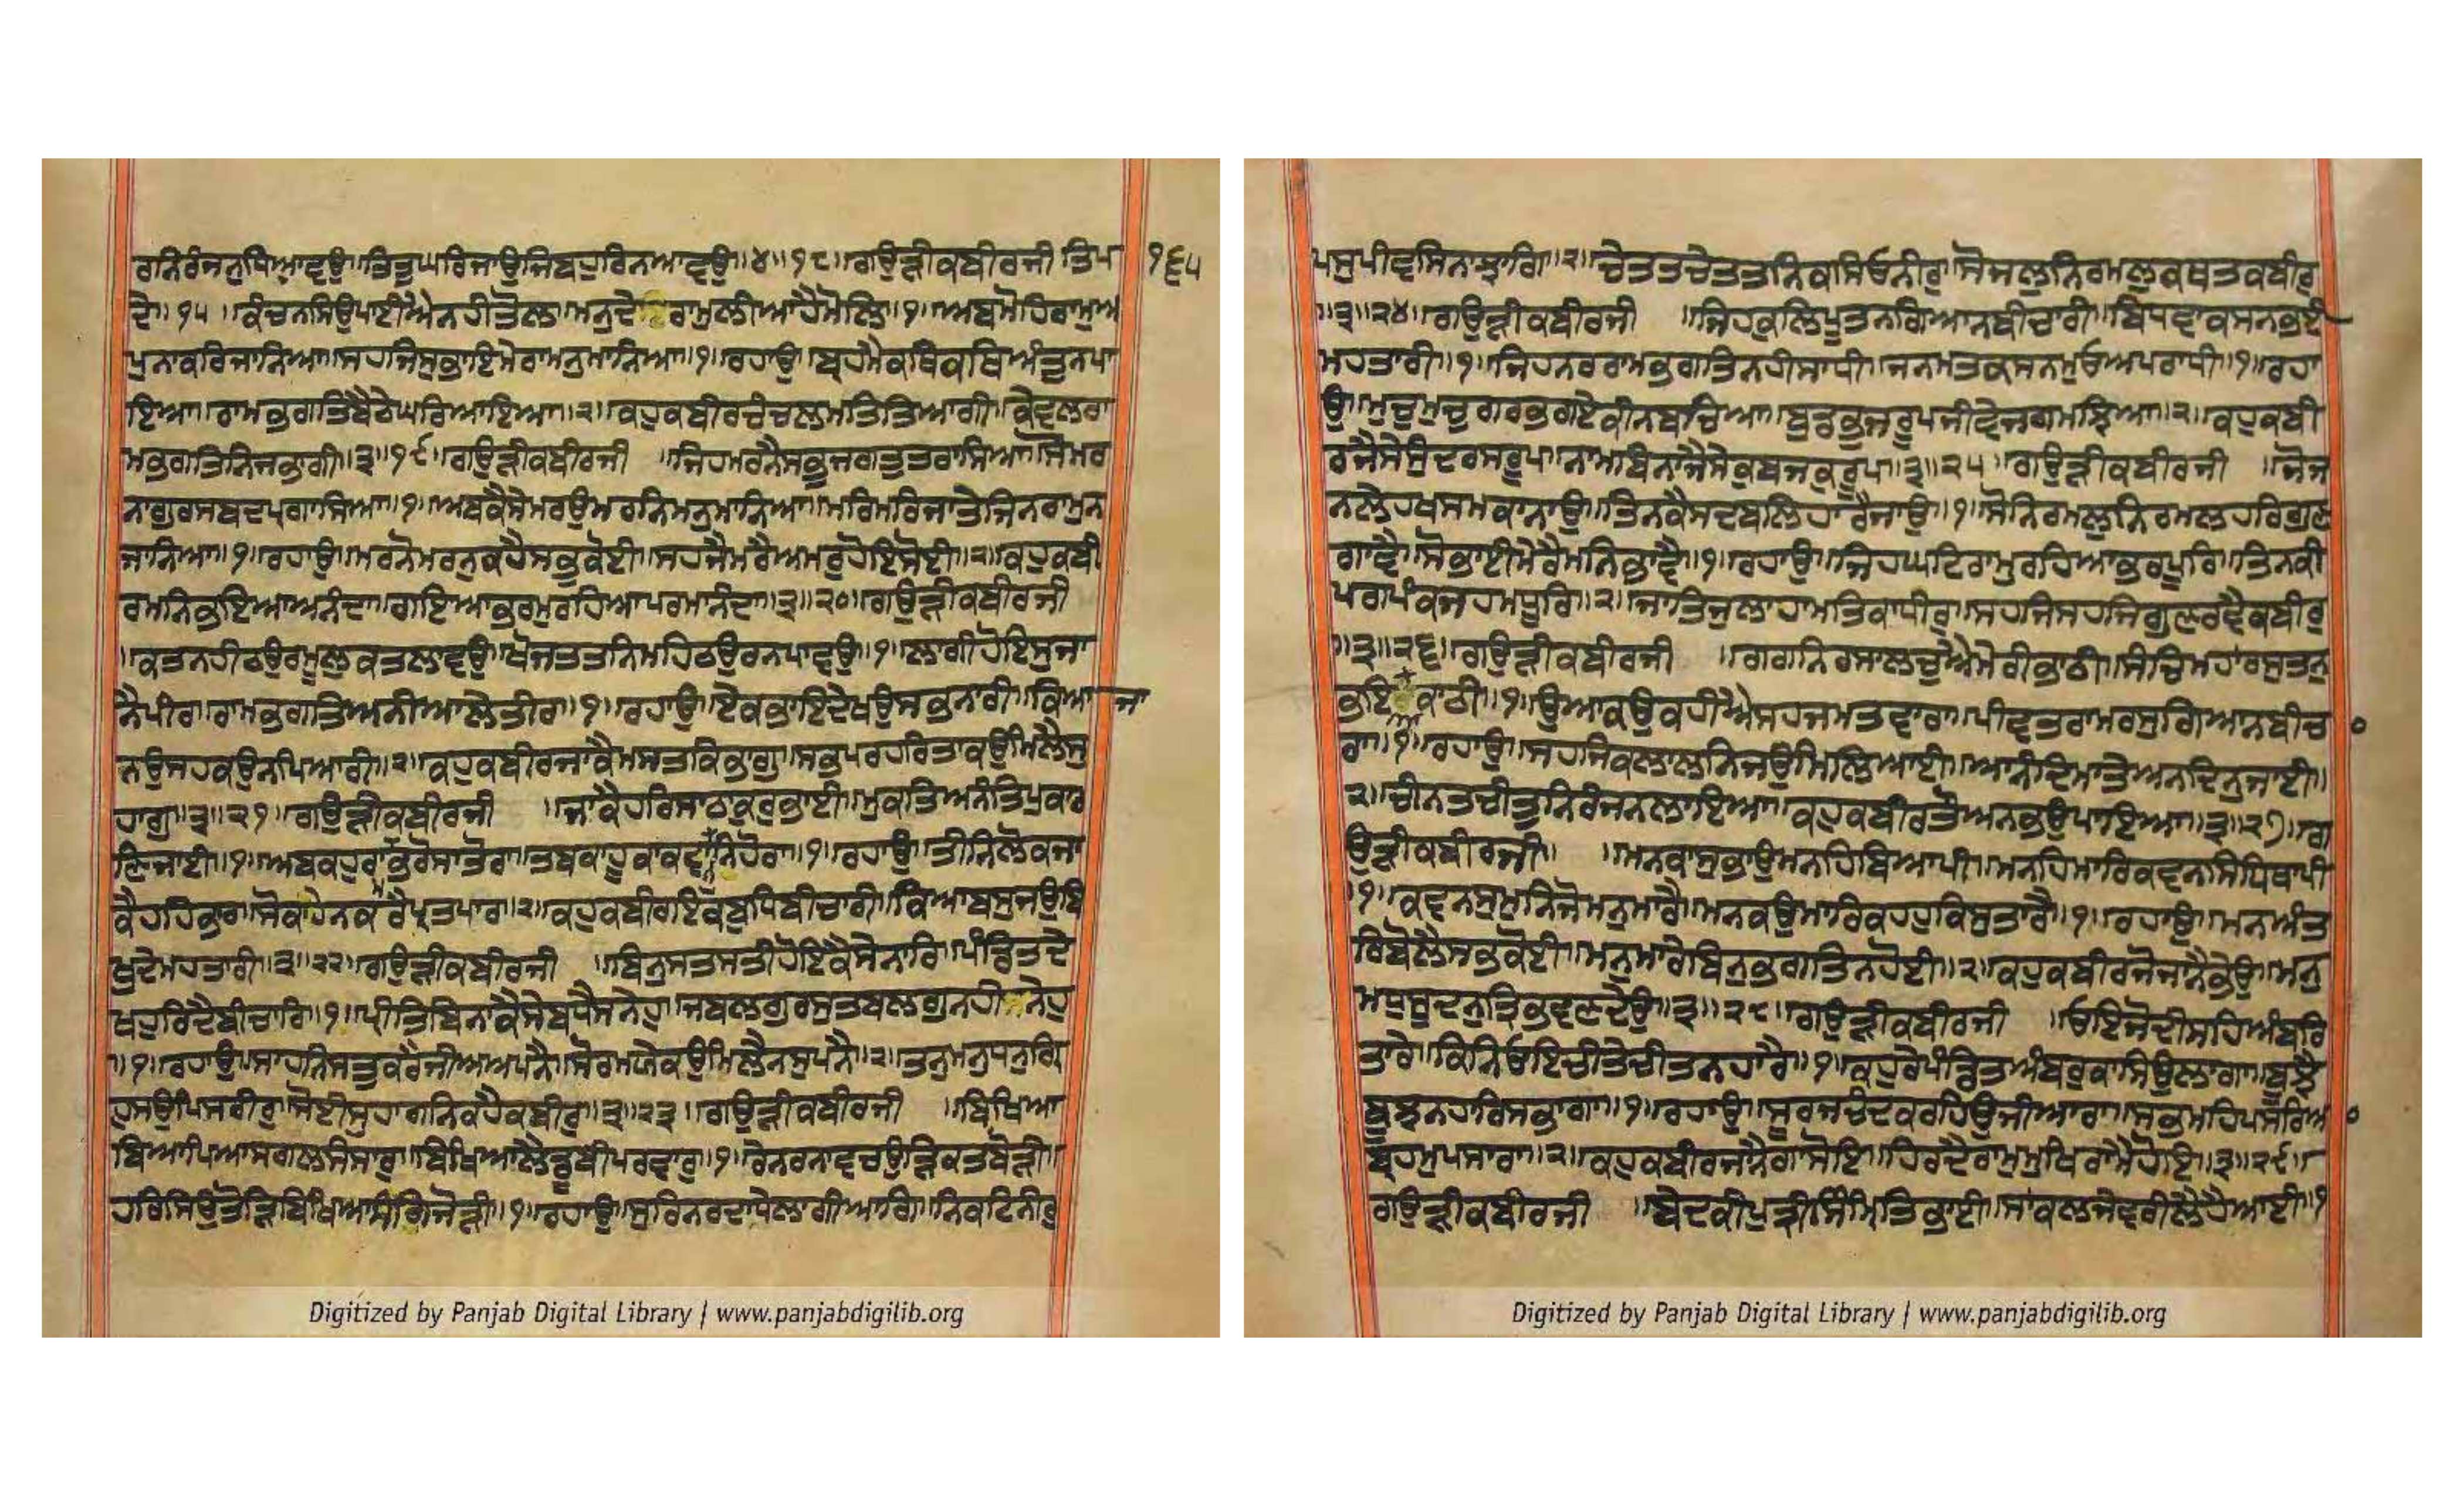 ਰਨਿਰੰਜਨੁਧਿਆਵਉ॥ਤਿਤੁਘਰਿਜਾਉਜਿਬਹੁਰਿਨਆਵਉ॥੪॥੧੮॥ਗਉੜੀਕਬੀਰਜੀ ਤਿਪ
੧੬੫
ਦੇ॥੧੫॥ਕੰਚਨਸਿਉਪਾਈਐਨਹੀਤੋਲਾ॥ਮਨੁਦੇ ਰਾਮੁਲੀਆਹੈਮੋਲਿ॥੧॥ਅਬਮੋਹਿਰਾਮੁਅ
ਪੁਨਾਕਰਿਜਾਨਿਆ॥ਸਹਜਿਸੁਭਾਇਮੇਰਾਮਨੁਮਾਨਿਆ॥੧॥ਰਹਾਉ॥ਬ੍ਰਹਮੈਕਥਿਕਥਿਅੰਤੁਨਪਾ
ਇਆ॥ਰਾਮਭਗਤਿਬੈਠੇਘਰਿਆਇਆ॥੨॥ਕਹੁਕਬੀਰਚੰਚਲਮਤਿਤਿਆਗੀ॥ਕੇਵਲਰਾ
ਮਭਗਤਿਨਿਜਭਾਗੀ॥੩॥੧੯॥ਗਉੜੀਕਬੀਰਜੀ ॥ਜਿਹਮਰਨੈਸਭੁਜਗਤੁਤਰਾਸਿਆ॥ਸੋਮਰ
ਨਾਗੁਰਸਬਦਪ੍ਰਗਾਸਿਆ॥੧॥ਅਬਕੈਸੇਮਰਉਮਰਨਿਮਨੁਮਾਨਿਆ॥ਮਰਿਮਰਿਜਾਤੇਜਿਨਰਾਮੁਨ
ਜਾਨਿਆ॥੧॥ਰਹਾਉ॥ਮਰਨੋਮਰਨੁਕਹੈਸਭੁਕੋਈ॥ਸਹਜੈਮਰੈਅਮਰੁਹੋਇਸੋਈ॥੨॥ਕਹੁਕਬੀ
ਰਮਨਿਭਇਆਅਨੰਦਾ॥ਗਇਆਭਰਮੁਰਹਿਆਪਰਮਾਨੰਦਾ॥੩॥੨੦॥ਗਉੜੀਕਬੀਰਜੀ
॥ਕਤਨਹੀਠਉਰਮੂਲੁਕਤਲਾਵਉ॥ਖੋਜਤਤਨਿਮਹਿਠਉਰਨਪਾਵਉ॥੧॥ਲਾਗੀਹੋਇਸੁਜਾ
ਨੈਪੀਰਾ॥ਰਾਮਭਗਤਿਅਨੀਆਲੇਤੀਰਾ॥੧॥ਰਹਾਉ॥ਏਕਭਾਇਦੇਖਉਸਭਨਾਰੀ॥ਕਿਆਜਾ
ਨਉਸਹਕਉਨਪਿਆਰੀ॥੨॥ਕਹੁਕਬੀਰਜਾਕੈਮਸਤਕਿਭਾਗੁ॥ਸਭਪਰਹਰਿਤਾਕਉਮਿਲੈਸੁ
ਹਾਗੁ॥੩॥੨੧॥ਗਉੜੀਕਬੀਰਜੀ ॥ਜਾਕੈਹਰਿਸਾਠਾਕੁਰੁਭਾਈ॥ਮੁਕਤਿਅਨੰਤਿਪੁਕਾਰ
ਣਿਜਾਈ॥੧॥ਅਬਕਹੁਰਾਮਭਰੋਸਾਤੋਰਾ॥ਤਬਕਾਹੂਕਾਕਵਨਨਿਹੋਰਾ॥੧॥ਰਹਾਉ॥ਤੀਨਿਲੋਕਜਾ
ਕੈਹਹਿਭਾਰਾ॥ਸੋਕਾਹੇਨਕਰੈਪ੍ਰਤਪਾਰਾ॥੨॥ਕਹੁਕਬੀਰਇਕਬੁਧਿਬੀਚਾਰੀ॥ਕਿਆਬਸੁਜਉਬਿ
ਖੁਦੇਮਹਤਾਰੀ॥੩॥੨੨॥ਗਉੜੀਕਬੀਰਜੀ ॥ਬਿਨੁਸਤਸਤੀਹੋਇਕੈਸੇਨਾਰਿ॥ਪੰਡਿਤਦੇ
ਖਹੁਰਿਦੈਬੀਚਾਰਿ॥੧॥ਪ੍ਰੀਤਿਬਿਨਾਕੈਸੇਬਧੈਸਨੇਹੁ॥ਜਬਲਗੁਰਸੁਤਬਲਗੁਨਹੀ ਨੇਹੁ
॥੧॥ਰਹਾਉ॥ਸਾਹਨਿਸਤੁਕਰੈਜੀਅਅਪਨੈ॥ਸੋਰਮਯੇਕਉਮਿਲੈਨਸੁਪਨੈ॥੨॥ਤਨੁਮਨੁਧਨੁਗ੍ਰਿ
ਹੁਸਉਪਿਸਰੀਰੁ॥ਸੋਈਸੁਹਾਗਨਿਕਹੈਕਬੀਰੁ॥੩॥੨੩॥ਗਉੜੀਕਬੀਰਜੀ ॥ਬਿਖਿਆ
ਬਿਆਪਿਆਸਗਲਸੰਸਾਰੁ॥ਬਿਖਿਆਲੈਡੂਬੀਪਰਵਾਰੁ॥੧॥ਰੇਨਰਨਾਵਚਉੜਿਕਤਬੋੜੀ॥
ਹਰਿਸਿਉਤੋੜਿਬਿਖਿਆਸੰਗਿਜੋੜੀ॥੧॥ਰਹਾਉ॥ਸੁਰਿਨਰਦਾਧੇਲਾਗੀਆਗਿ॥ਨਿਕਟਿਨੀਰੁ
ਪਸੁਪੀਵਸਿਨਝਾਗਿ॥੨॥ਚੇਤਤਚੇਤਤਨਿਕਸਿਓਨੀਰੁ॥ਸੋਜਲੁਨਿਰਮਲੁਕਥਤਕਬੀਰੁ
॥੩॥੨੪॥ਗਉੜੀਕਬੀਰਜੀ ॥ਜਿਹਕੁਲਿਪੂਤੁਨਗਿਆਨਬੀਚਾਰੀ॥ਬਿਧਵਾਕਸਨਭਈ
ਮਹਤਾਰੀ॥੧॥ਜਿਹਨਰਰਾਮਭਗਤਿਨਹੀਸਾਧੀ॥ਜਨਮਤਕਸਨਮੁਓਅਪਰਾਧੀ॥੧॥ਰਹਾ
ਉ॥ਮੁਚੁਮੁਚੁਗਰਭਗਏਕੀਨਬਚਿਆ॥ਬੁਡਭੁਜਰੂਪਜੀਵੇਜਗਮਝਿਆ॥੨॥ਕਹੁਕਬੀ
ਰਜੈਸੇਸੁੰਦਰਸਰੂਪ॥ਨਾਮਬਿਨਾਜੈਸੇਕੁਬਜਕੁਰੂਪ॥੩॥੨੫॥ਗਉੜੀਕਬੀਰਜੀ ॥ਜੋਜ
ਨਲੇਹਿਖਸਮਕਾਨਾਉ॥ਤਿਨਕੈਸਦਬਲਿਹਾਰੈਜਾਉ॥੧॥ਸੋਨਿਰਮਲੁਨਿਰਮਲਹਰਿਗੁਣ
ਗਾਵੈ॥ਸੋਭਾਈਮੇਰੈਮਨਿਭਾਵੈ॥੧॥ਰਹਾਉ॥ਜਿਹਘਟਿਰਾਮੁਰਹਿਆਭਰਪੂਰਿ॥ਤਿਨਕੀ
ਪਗਪੰਕਜਹਮਧੂਰਿ॥੨॥ਜਾਤਿਜੁਲਾਹਾਮਤਿਕਾਧੀਰੁ॥ਸਹਜਿਸਹਜਿਗੁਣਰਵੈਕਬੀਰੁ
॥੩॥੨੬॥ਗਉੜੀਕਬੀਰਜੀ ॥ਗਗਨਿਰਸਾਲਚੁਐਮੇਰੀਭਾਠੀ॥ਸੰਚਿਮਹਾਰਸੁਤਨੁ
ਭਇ ਕਾਠੀ॥੧॥ਉਆਕਉਕਹੀਐਸਹਜਮਤਵਾਰਾ॥ਪੀਵਤਰਾਮਰਸੁਗਿਆਨਬੀਚ
ਰਾ॥੧॥ਰਹਾਉ॥ਸਹਜਿਕਲਾਲਨਿਜਉਮਿਲਿਆਈ॥ਆਨੰਦਿਮਾਤੇਅਨਦਿਨੁਜਾਈ॥
੨॥ਚੀਨਤਚੀਤੁਨਿਰੰਜਨਲਾਇਆ॥ਕਹੁਕਬੀਰਤੌਅਨਭਉਪਾਇਆ॥੩॥੨੭॥ਗ
ਉੜੀਕਬੀਰਜੀ॥ ॥ਮਨਕਾਸੁਭਾਉਮਨਹਿਬਿਆਪੀ॥ਮਨਹਿਮਾਰਿਕਵਨਸਿਧਿਥਾਪੀ
॥੧॥ਕਵਨੁਸੁਮੁਨਿਜੋਮਨੁਮਾਰੈ॥ਮਨਕਉਮਾਰਿਕਹਹੁਕਿਸੁਤਾਰੈ॥੧॥ਰਹਾਉ॥ਮਨਅੰਤ
ਰਿਬੋਲੈਸਭੁਕੋਈ॥ਮਨੁਮਾਰੇਬਿਨੁਭਗਤਿਨਹੋਈ॥੨॥ਕਹੁਕਬੀਰਜੋਜਾਨੈਭੇਉ॥ਮਨੁ
ਮਧੁਸੂਦਨੁਤ੍ਰਿਭਵਣਦੇਉ॥੩॥੨੮॥ਗਉੜੀਕਬੀਰਜੀ ॥ਓਇਜੋਦੀਸਹਿਅੰਬਰਿ
ਤਾਰੇ॥ਕਿਨਿਓਇਚੀਤੇਚੀਤਨਹਾਰੈ॥੧॥ਕਹੁਰੇਪੰਡਿਤਅੰਬਰੁਕਾਸਿਉਲਾਗਾ॥ਬੂਝੈ
ਬੂਝਨਹਰਿਸਭਾਗਾ॥੧॥ਰਹਾਉ॥ਸੂਰਜਚੰਦਕਰਹਿਉਜੀਆਰਾ॥ਸਭਮਹਿਪਸਰਿਆ
ਬ੍ਰਹਮੁਪਸਾਰਾ॥੨॥ਕਹੁਕਬੀਰਜਾਨੈਗਾਸੋਇ॥ਹਿਰਦੈਰਾਮੁਮੁਖਿਰਾਮੈਹੋਇ॥੩॥੨੯॥
ਗਉੜੀਕਬੀਰਜੀ ॥ਬੇਦਕੀਪੁਤ੍ਰੀਸਿੰਮ੍ਰਿਤਿਭਾਈ॥ਸਾਂਕਲਜੇਵਰੀਲੈਹੈਆਈ॥੧
Digitized by Panjab Digital Library | www.panjabdigilib.org
Digitized by Panjab Digital Library | www.panjabdigilib.org